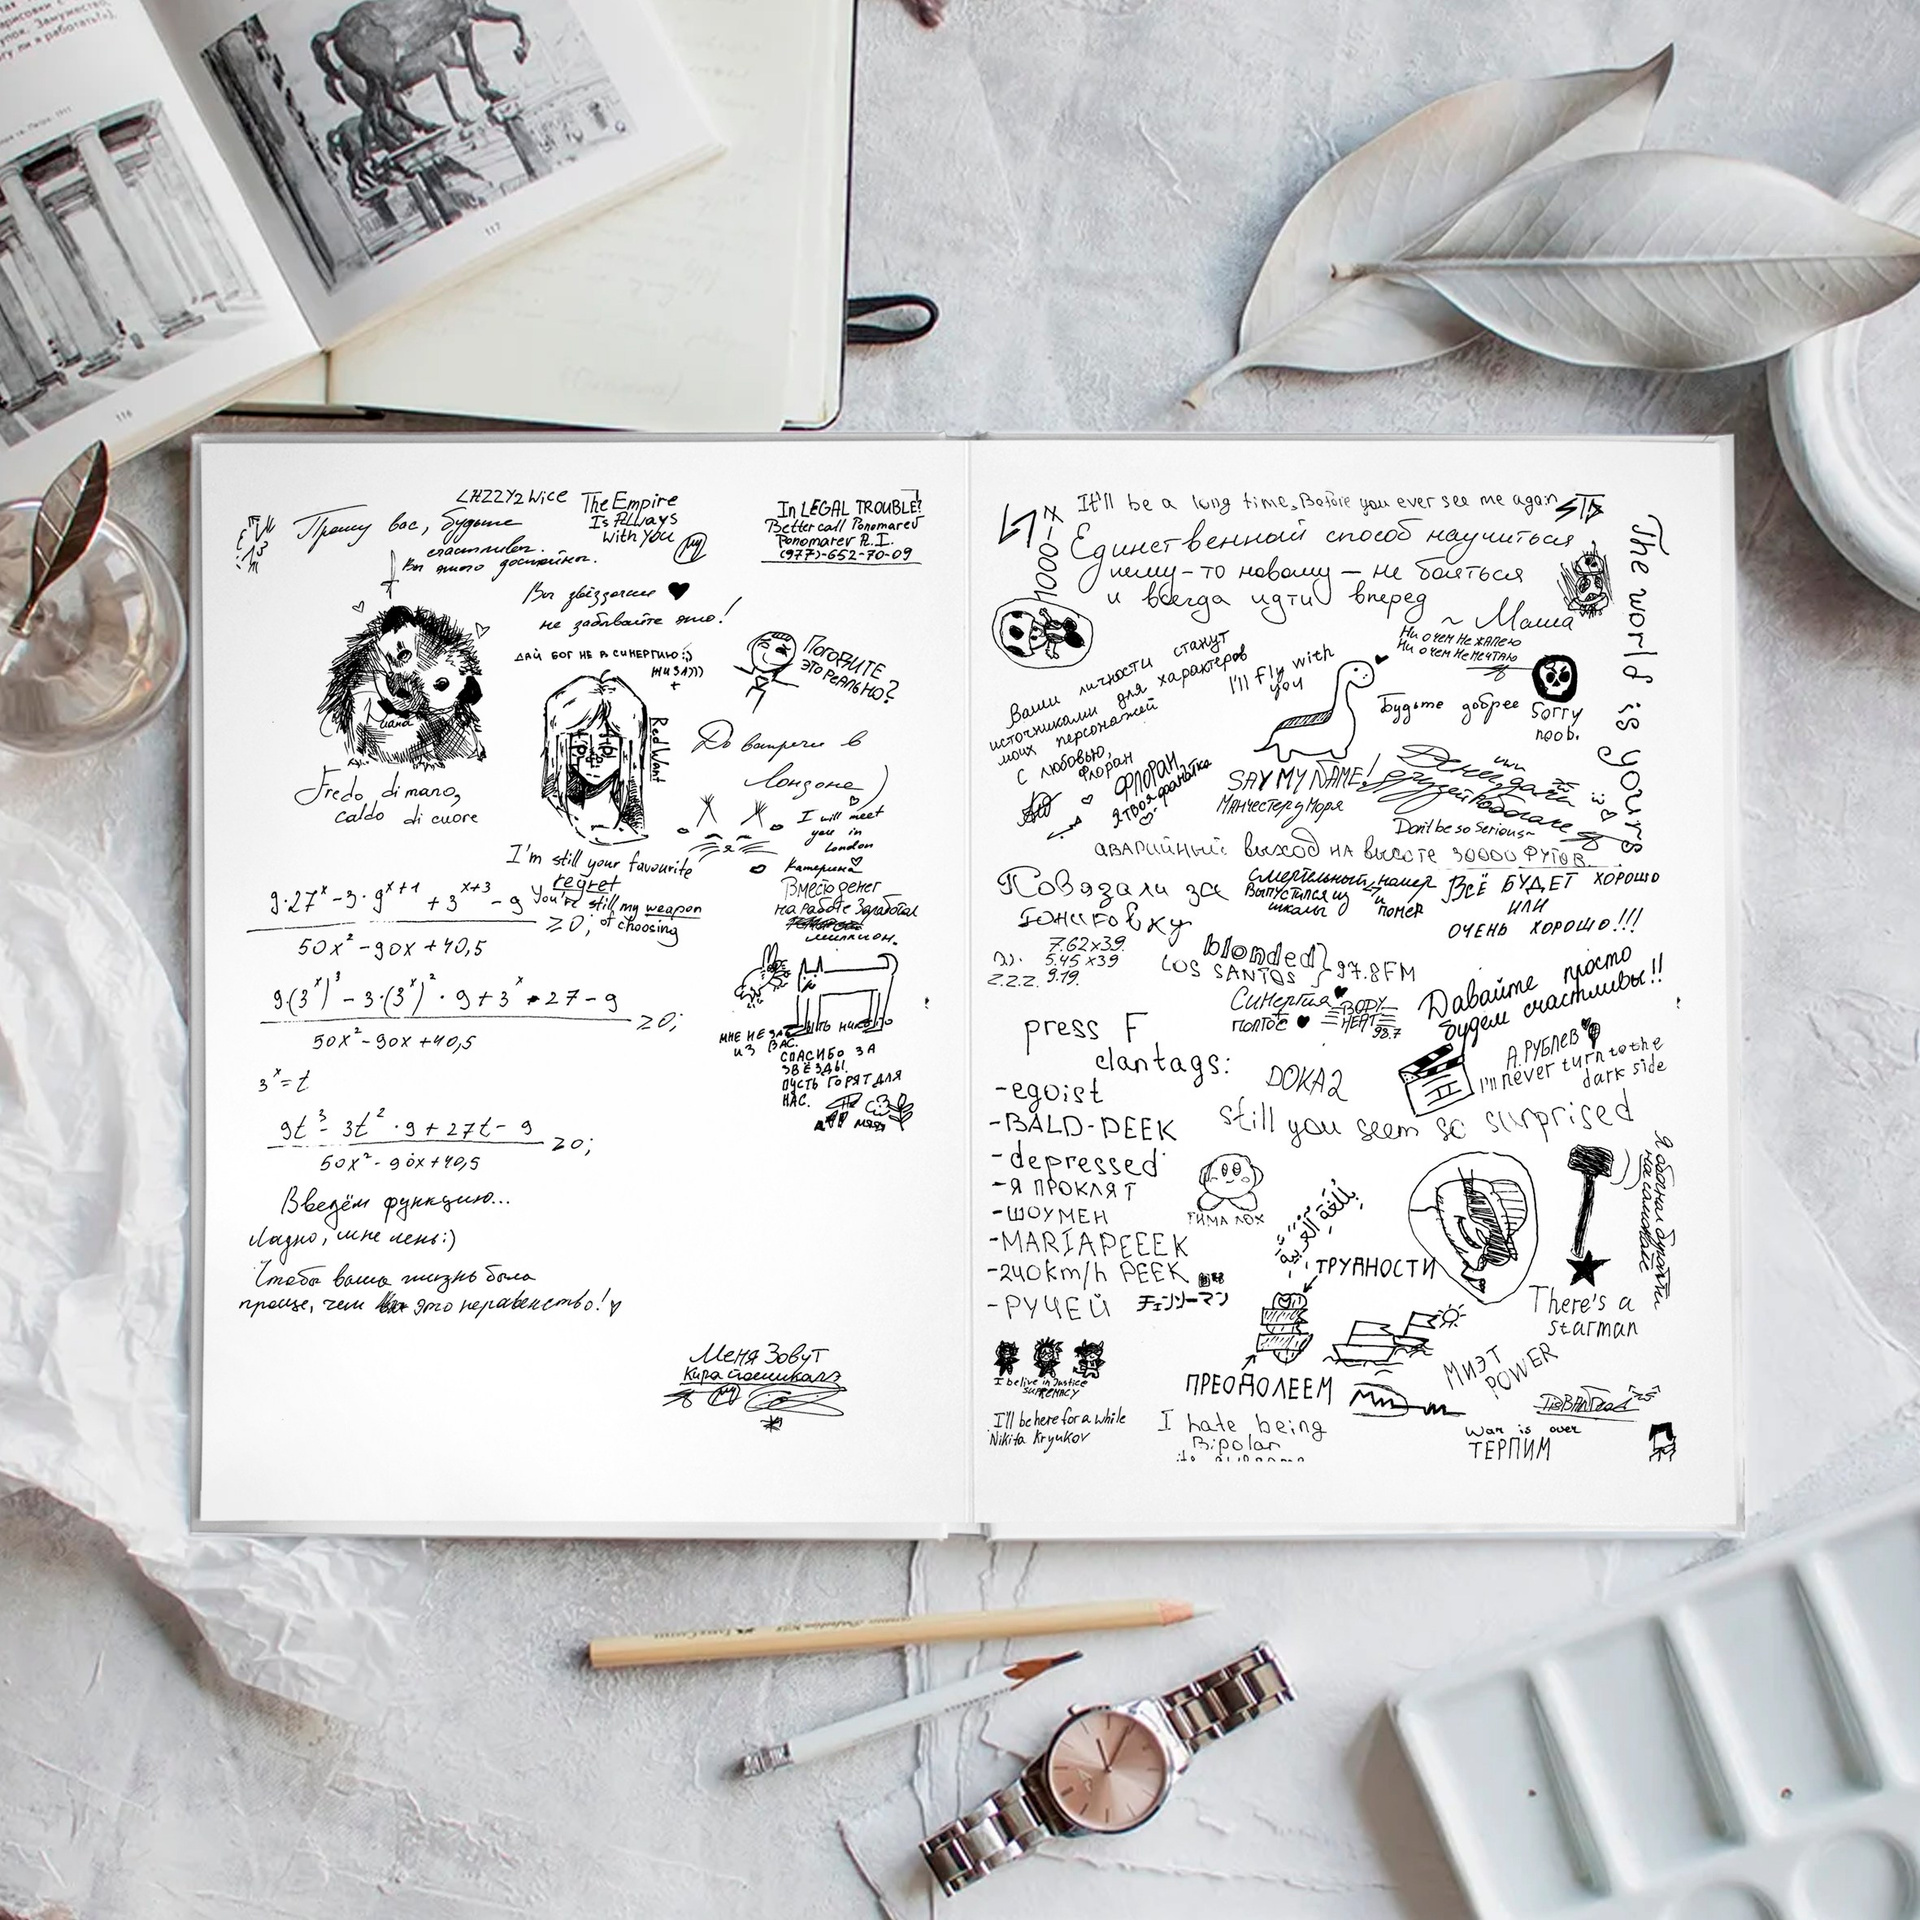 116
117
LHZZY2 Wice
The Empire
Is Always
With you
In LEGAL TROUBLE?
Better call Ponomarev
Ponomarev R.I.
(977)-652-70-09
Прошу вас, будьте
счастливы.
Вы этого достойны.
Вы звёздочки
не забывайте это!
ДАЙ БОГ НЕ В СИНЕРГИЮ:)
ЖИЗА)))
+
ПОГОДИТЕ
ЭТО РЕАЛЬНО?
Red Want
Fredo di mano,
caldo di cuore
До встречи в
Лондоне)
I will meet
you in
London
Катерина
I'm still your favourite
regret
You're still my weapon
of choosing
Вместо денег
на работе Заработал
миллион.
9·27^x - 3·9^x+1 + 3^x+3 - 9
50x² - 90x + 40,5
≥ 0;
9(3^x)³ - 3·(3^x)²·9 + 3^x·27 - 9
50x² - 90x + 40,5
≥ 0;
3^x = t
9t³ - 3t²·9 + 27t - 9
50x² - 90x + 40,5
≥ 0;
Введём функцию...
Ладно, мне лень:)
Чтобы ваша жизнь была
проще, чем это неравенство!
ИЗ ВАС.
СПАСИБО ЗА
ЗВЁЗДЫ.
ПУСТЬ ГОРЯТ ДЛЯ
НАС.
Меня Зовут
Кира
It'll be a long time, Before you ever see me again
1000-7
Единственный способ научиться
чему-то новому - не бояться
и всегда идти вперед
~ Маша
The world is yours
Ни о чем Не жалею
Ни о чем Не мечтаю
Ваши личности станут
источниками для характеров
моих персонажей
С любовью,
Флоран
I'll fly with
you
Будьте добрее
Sorry
noob.
ФЛОРАН
Я твоя фанатка
SAY MY NAME!
Манчестер у Моря
Don't be so serious~
АВАРИЙНЫЙ выход на высоте 30000 ФУТОВ
Повязали за
Смертельный номер
Выпустился из
школы и
помер
ВСЁ БУДЕТ ХОРОШО
ИЛИ
ОЧЕНЬ ХОРОШО!!!
7.62x39
5.45x39
9.19.
Z.Z.Z.
blonded
LOS SANTOS
97.8FM
Синергия
ПОЛТОС
BODY
HEAT
98.7
Давайте просто
будем счастливы!!
press F
clantags:
DOKA2
А.РУБЛЕВ
I'll never turn to the
dark side
-egoist
-BALD-PEEK
-depressed
-Я ПРОКЛЯТ
-ШОУМЕН
-MARIAPEEEK
-240km/h PEEK
-РУЧЕЙ
still you seem so surprised
ТИМА ЛОХ
チェンソーマン
بللغة العربية
ТРУДНОСТИ
ПРЕОДОЛЕЕМ
There's a
starman
МИЭТ
POWER
I belive in Justice
SUPREMACY
I'll be here for a while
Nikita Kryukov
I hate being
Bipolar
War is over
ТЕРПИМ